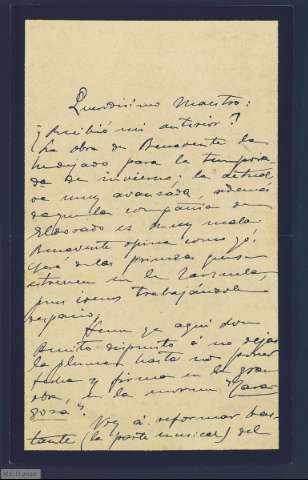 Queridísimo Maestro:
¿Recibió mi anterior?
La obra de Benavente la
he dejado para la tempora
da de invierno; la actual
va muy avanzada, además
de que la compañía de
Eldorado es muy mala.
Benavente opina como yó.
Será de las primeras que se
estrenen en la Zarzuela,
pues iremos trabajándola
despacio.
Tiene ya aquí don
Benito dispuesto á no dejar
la pluma hasta no poner
fecha y firma en la gran
obra, en la enorme "Zara
goza".
Voy á reformar bas-
tante (la parte musical) del